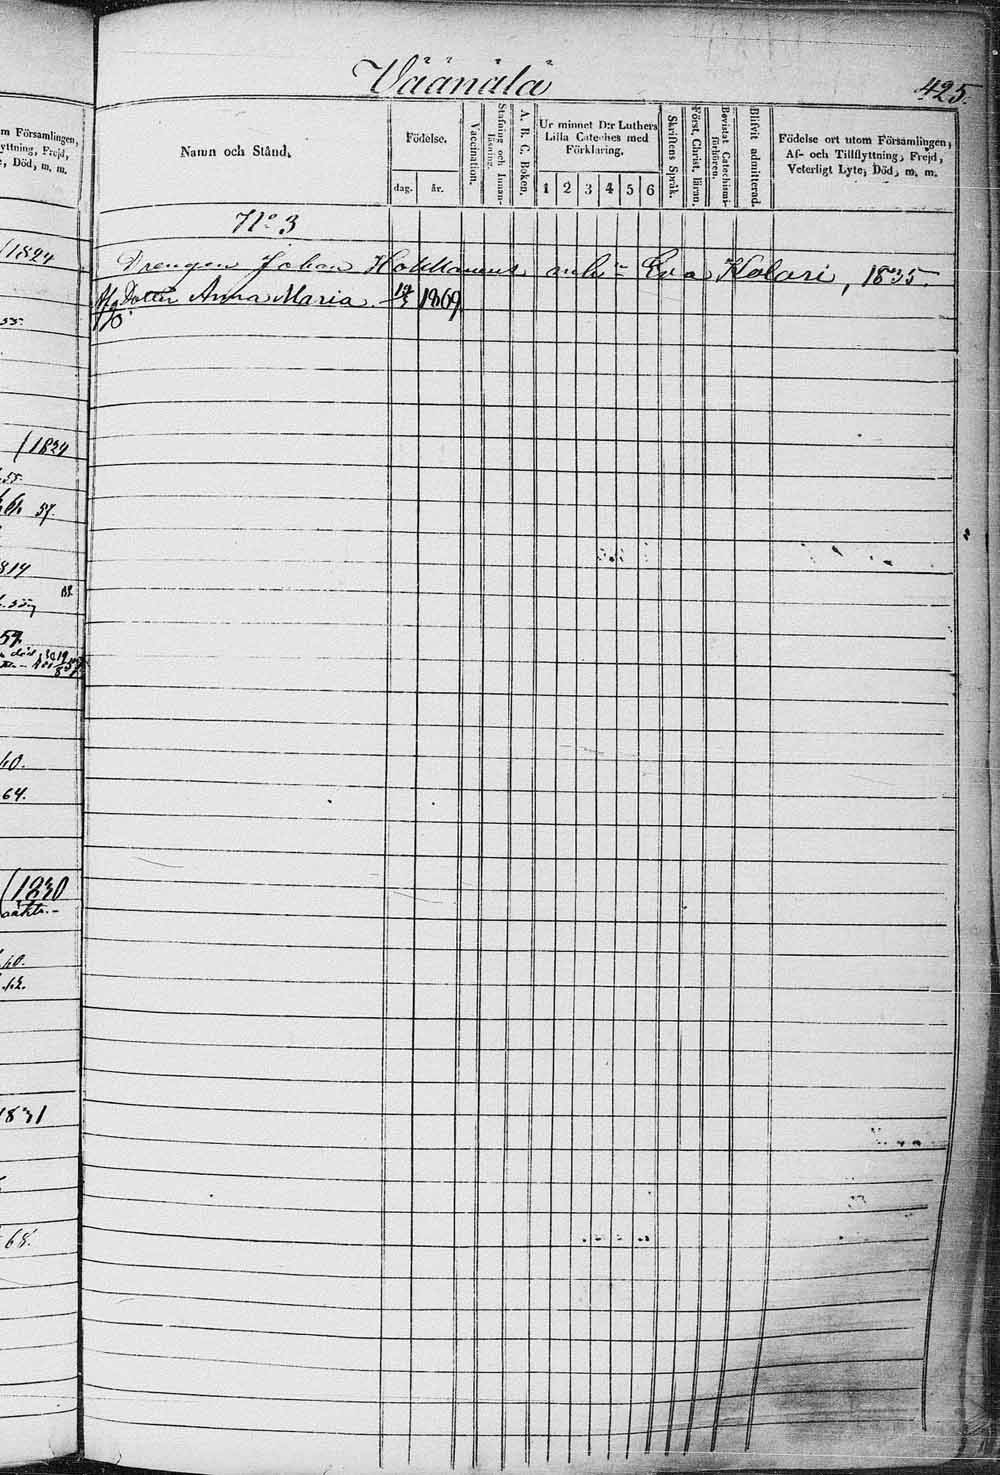 Väänälä
425.
Namn och Stånd.
Födelse.
dag.
år.
Vaccination.
Stafning och Innan-
läsning.
A. B. C. Boken.
Ur minnet D:r Luthers
Lilla Cateches med
Förklaring.
1 2 3 4 5 6
Skriftens Språk.
Först. Christ. läran.
Bevistat Catechismi-
förhören.
Blifvit admitterad.
Födelse ort utom Församlingen,
Af- och Tillflyttning, Frejd,
Veterligt Lyte, Död, m. m.
N:o 3
Drengen Johan Hokkanens Eva Kolari, 1835.
Dotter Anna Maria 1869
m Församlingen,
yttning, Frejd,
, Död, m. m.
/1824
55.
/1834
55.
57.
814
57.
40.
64.
(1830
40.
42.
1831
68.